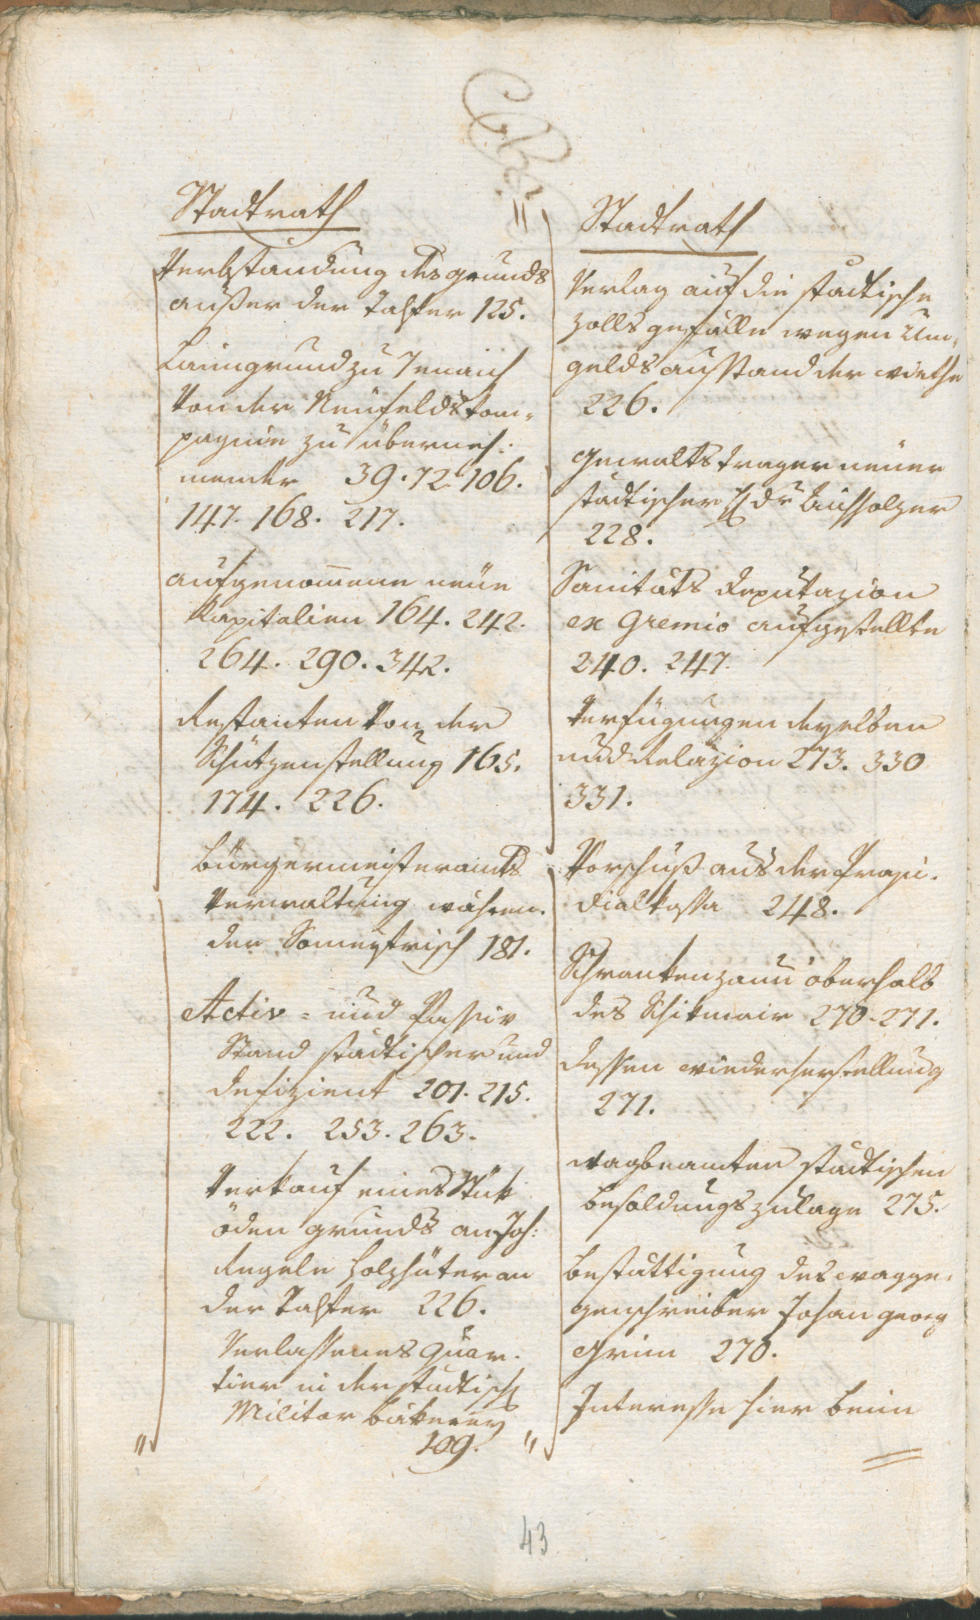 Stadtrath
Verbstandung des grunds
außer der Talfer 125.
Leimgrund zu Jenaich
Von der Neufelds Kom-
pagnie zu überneh-
mender 39. 72. 106.
147. 168. 217.
aufgenommene neue
Kapitalien 164. 242.
264. 290. 342.
Restanten Von der
Schützenstellung 165.
174. 226.
Bürgermeisteramts
Verwaltung während
der 181.
Activ- und Passiv
Stand städtischer und
defizient 201. 215.
222. 253. 263.
Verkauf eines Stük
öden grunds an Joh:
Regele Holzhüter an
der Talfer 226.
Verlassenes Quar-
tier in der städtisch
Militar Bäkerey
109.
Stadtrath
Verlag auf die städtische
Zollsgefälle wegen Um-
gelds ausstand der Wirthe
226.
Gewaltstrager neuer
städtischer H Dr Buchholzer
228.
Sanitäts Deputazion
ex Gremio aufgestellte
240. 247.
Verfügungen derselben
und Relazion 273. 330
331.
Vorschuß aus der Präsi-
dialkassa 248.
Schrankenzaun oberhalb
des Schikmair 270-271.
dessen wiederherstellung
271.
wagbeamten städtischen
Besoldungszulage 275.
Bestättigung des wagge-
genschreiber Johan Georg
Grim 270.
Interesse hier beim
43